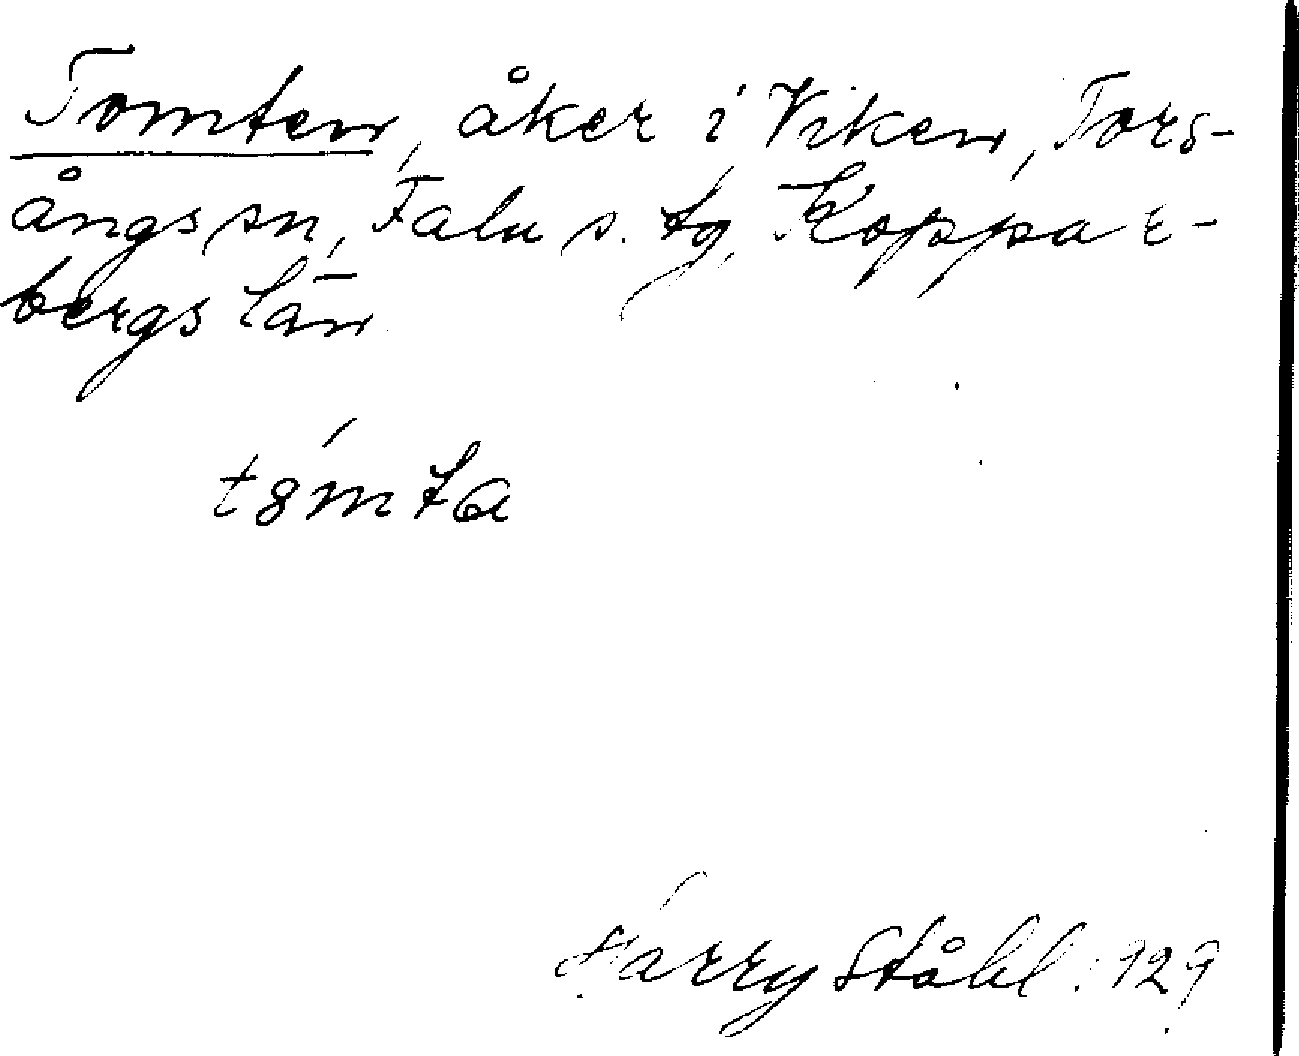 Tomten, åker i Viken, Tors-
ångs sn, Falu s. tg, Koppar-
bergs län
t8mta
Harry Ståhl 1929